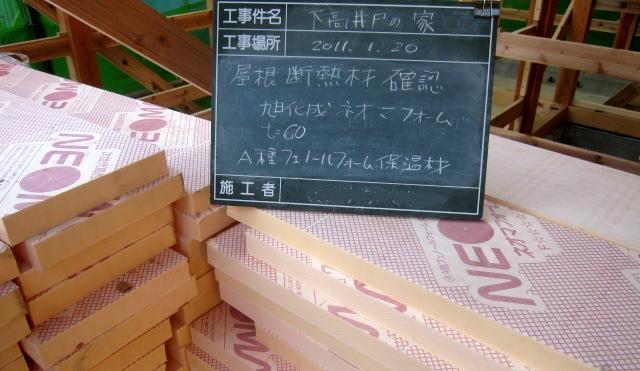 工事件名 下高井戸の家
工事場所 2011.1.20
屋根断熱材 確認
旭化成 ネオマフォーム
t=60
A種フェノールフォーム保温材
施工者
NEO
NEO
ネオマフォーム